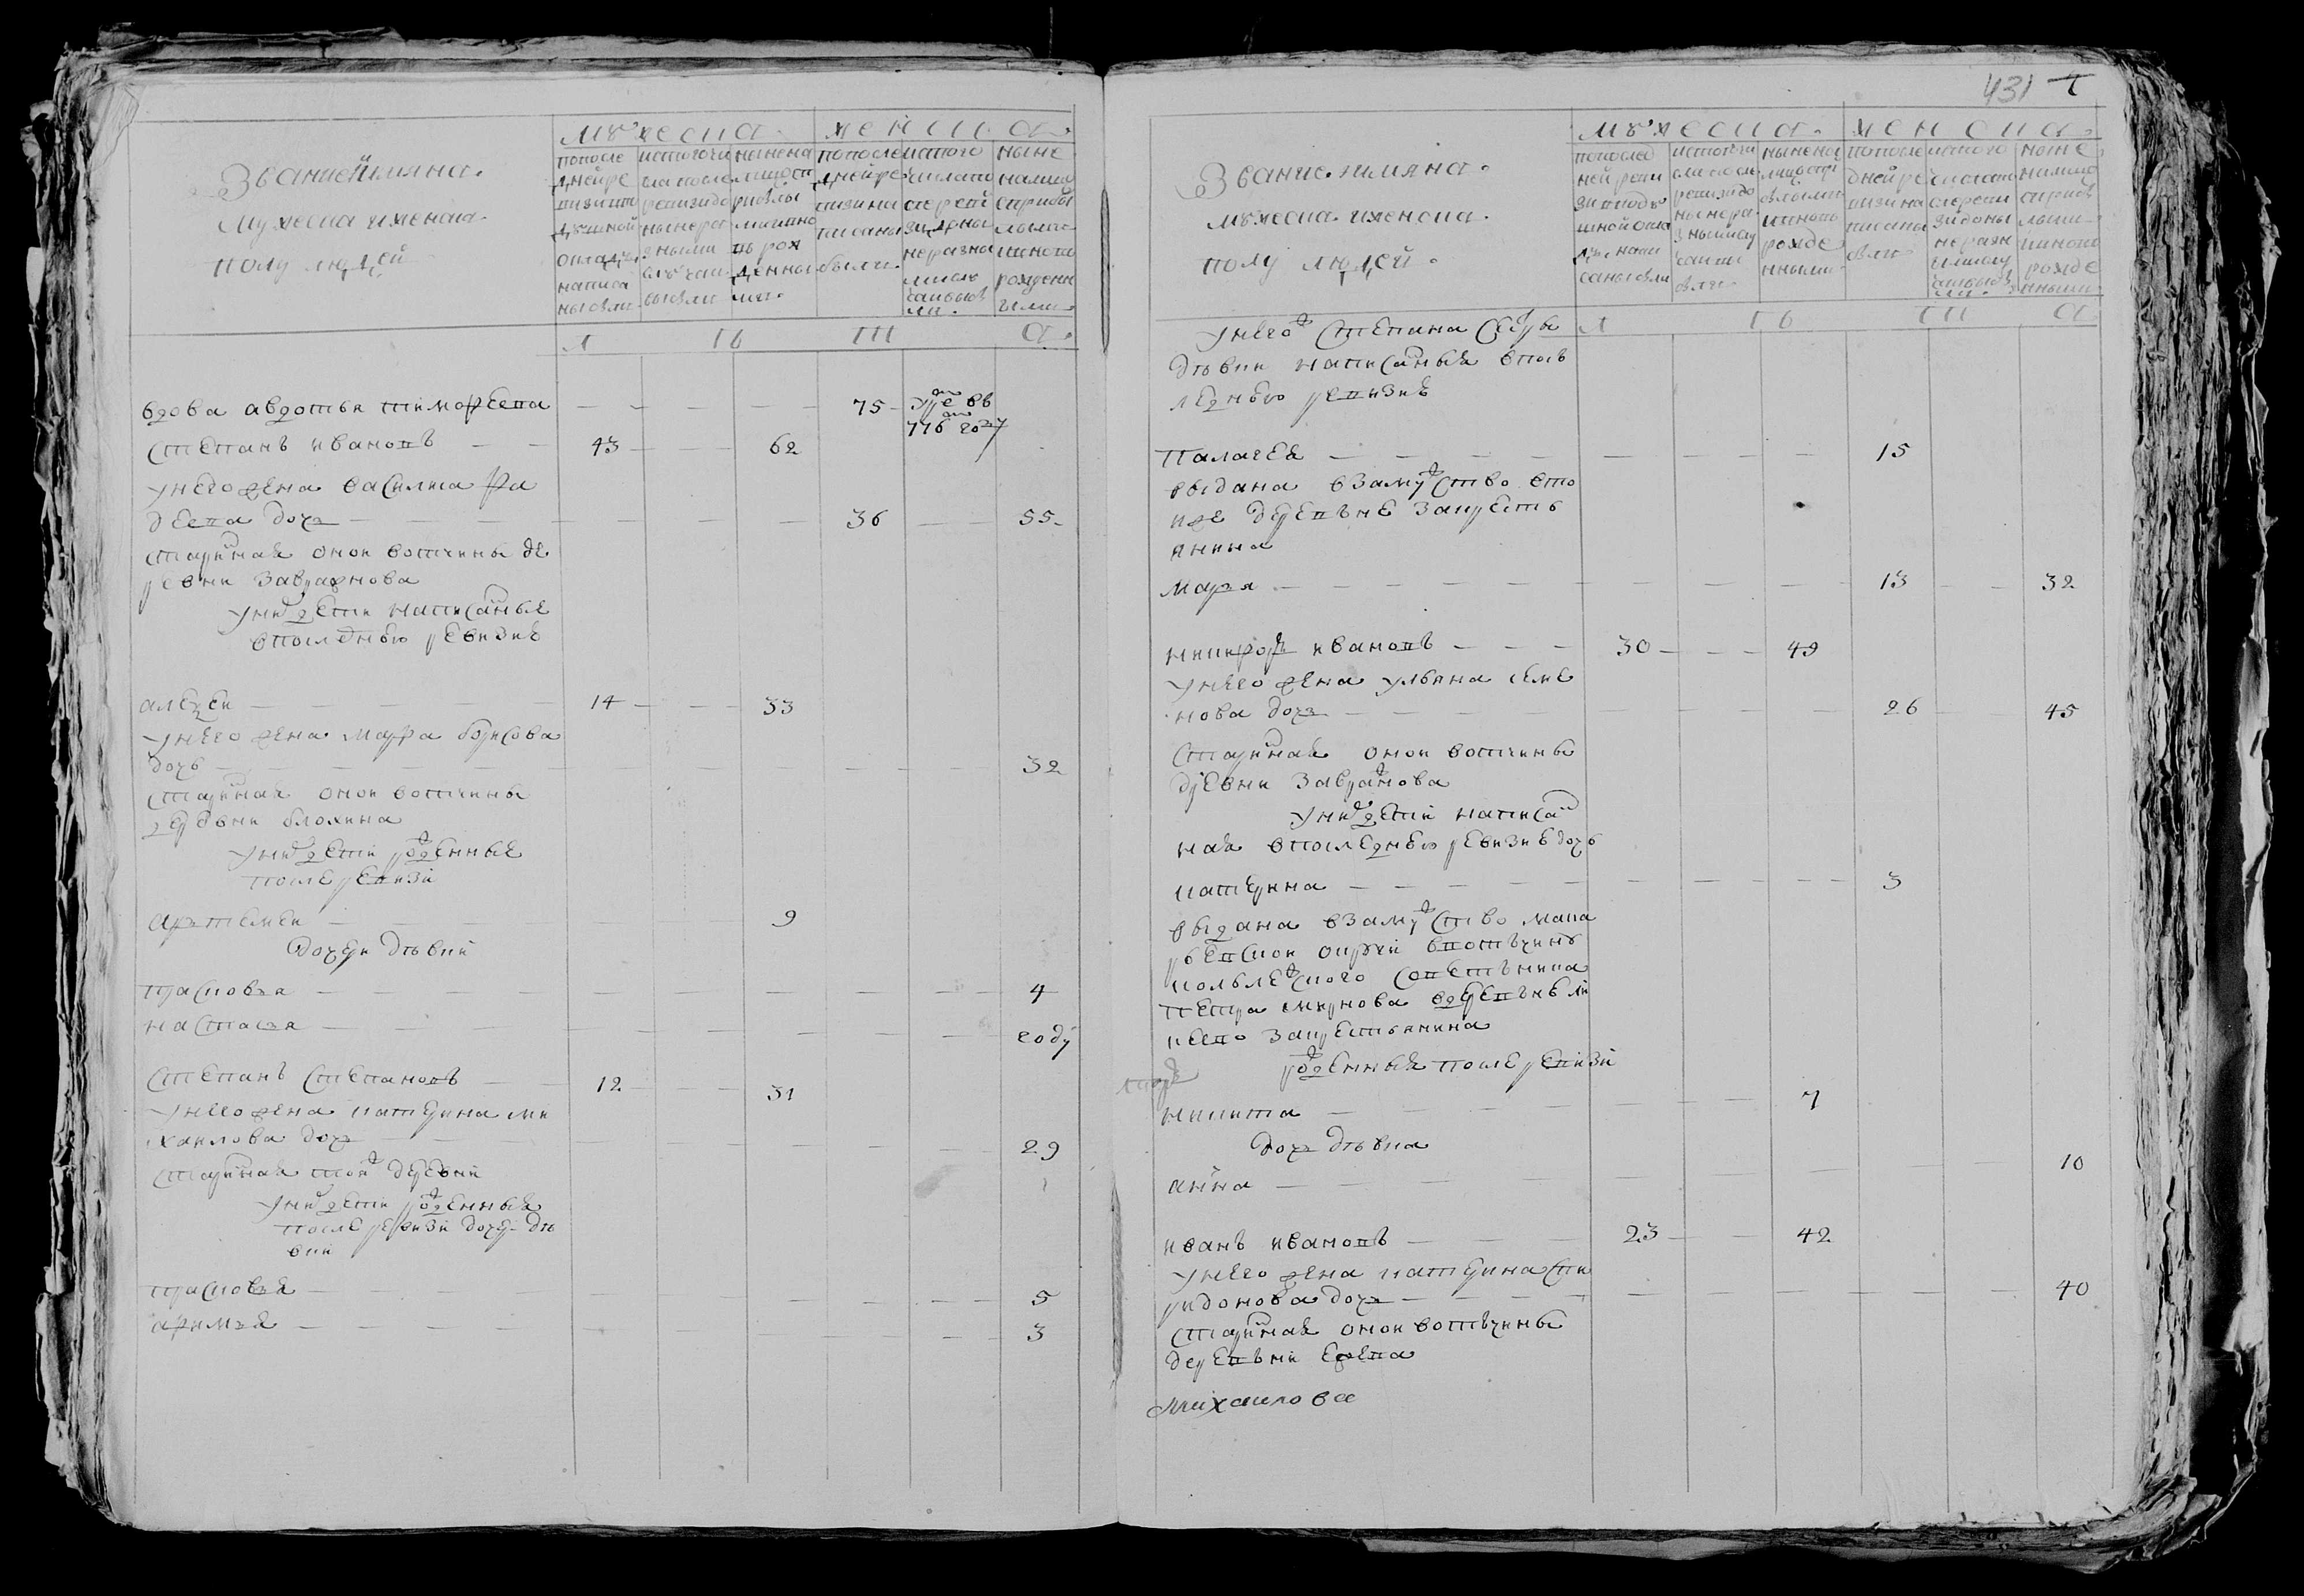 Звание имяна.
мужеска иженска
полу людей
мужеска
женска
попосле
дней ре
визии
душной
окладъ
написа
ны были
ис того чи
сла после
ревизи до
ныне ра
зными
случаи
выбыли
ныне на
лицо с
приб лы
ми и вно
вь рож
денны
ми.
попосле
дней ре
визи на
писаны
были.
ис того
числа по
сле реви
зи до ны
не разны
ми слу
чаи выбы
ли.
ныне
на лицо
с прибы
лыми
и вново
рожденн
ыми
Л
ГЬ
Т
А
вдова авдотья тимофеева — — — — 75 — умре въ
776 году
Степанъ ивановъ — — 43 — — 62
унего жена василиса фа
деева дочь — — — — — 36 — — 55
старинная оной вотчины де
ревни завражнова
унихъ дети написанныя
впоследнюю ревизию
алексеи — — — 14 — — 33
унего жена марфа борисова
дочь — — — — — — — 32
старинная оной вотчины
деревни блохина
унихъ дети рожденныя
после ревизи
артемеи — — — — 9
дочери девки
прасковья — — — — — — — 4
настасья — — — — — — — году
Степанъ Степановъ — — 12 — — 31
унего жена катерина ми
хаилова дочь — — — — — — — 29
старинная тойже деревни
унихъ дети рожденныя
после ревизи дочери де
вки
прасковья — — — — — — — 5
афимья — — — — — — — 3
431
Звание имяна.
мужеска иженска.
полу людей.
мужеска.
женска.
попослед
ней реви
зи подъ
шной окла
дъ напи
саны были
ис того чи
сла после
ревизи до
ныне ра
зными слу
чаи вы
были
ныне на
лицо с при
былыми
и вновь
рожде
нными
попосле
дней ре
визи на
писаны
были
ис того
числа по
сле реви
зи до ны
не разн
ыми слу
чаи выбы
ли.
ныне
на лицо
с прибы
лыми
и вново
рожде
нными
Л
ГЬ
Т
А
унегожъ Степана Сестры
девки написанныя впосъ
леднюю ревизию
палагея — — — — — — — 15
выдана взамужство вто
иже деревъне закресть
янина
марья — — — — — — — 13 — — 32
никифоръ ивановъ — — — 30 — — 49
унего жена ульяна семе
нова дочь — — — — — — 26 — 45
старинная оной вотчины
древни завражнова
унихъ дети написан
ная впоследнюю ревизию дочь
катерина — — — — — — — 3
выдана взамужство мака
рьевской округи ввотъчину
колылежского Советъника
петра смирнова вдеревъню ли
кеево закрестьянина
рожденныя после ревизи
никита — — — — — 7
дочь девка
анна — — — — — — — 10
иванъ ивановъ — — — 23 — — 42
унего жена катерина спи
ридонова дочь — — — — — — — 40
старинная оной вотъчины
деревъни ежева
михаилова